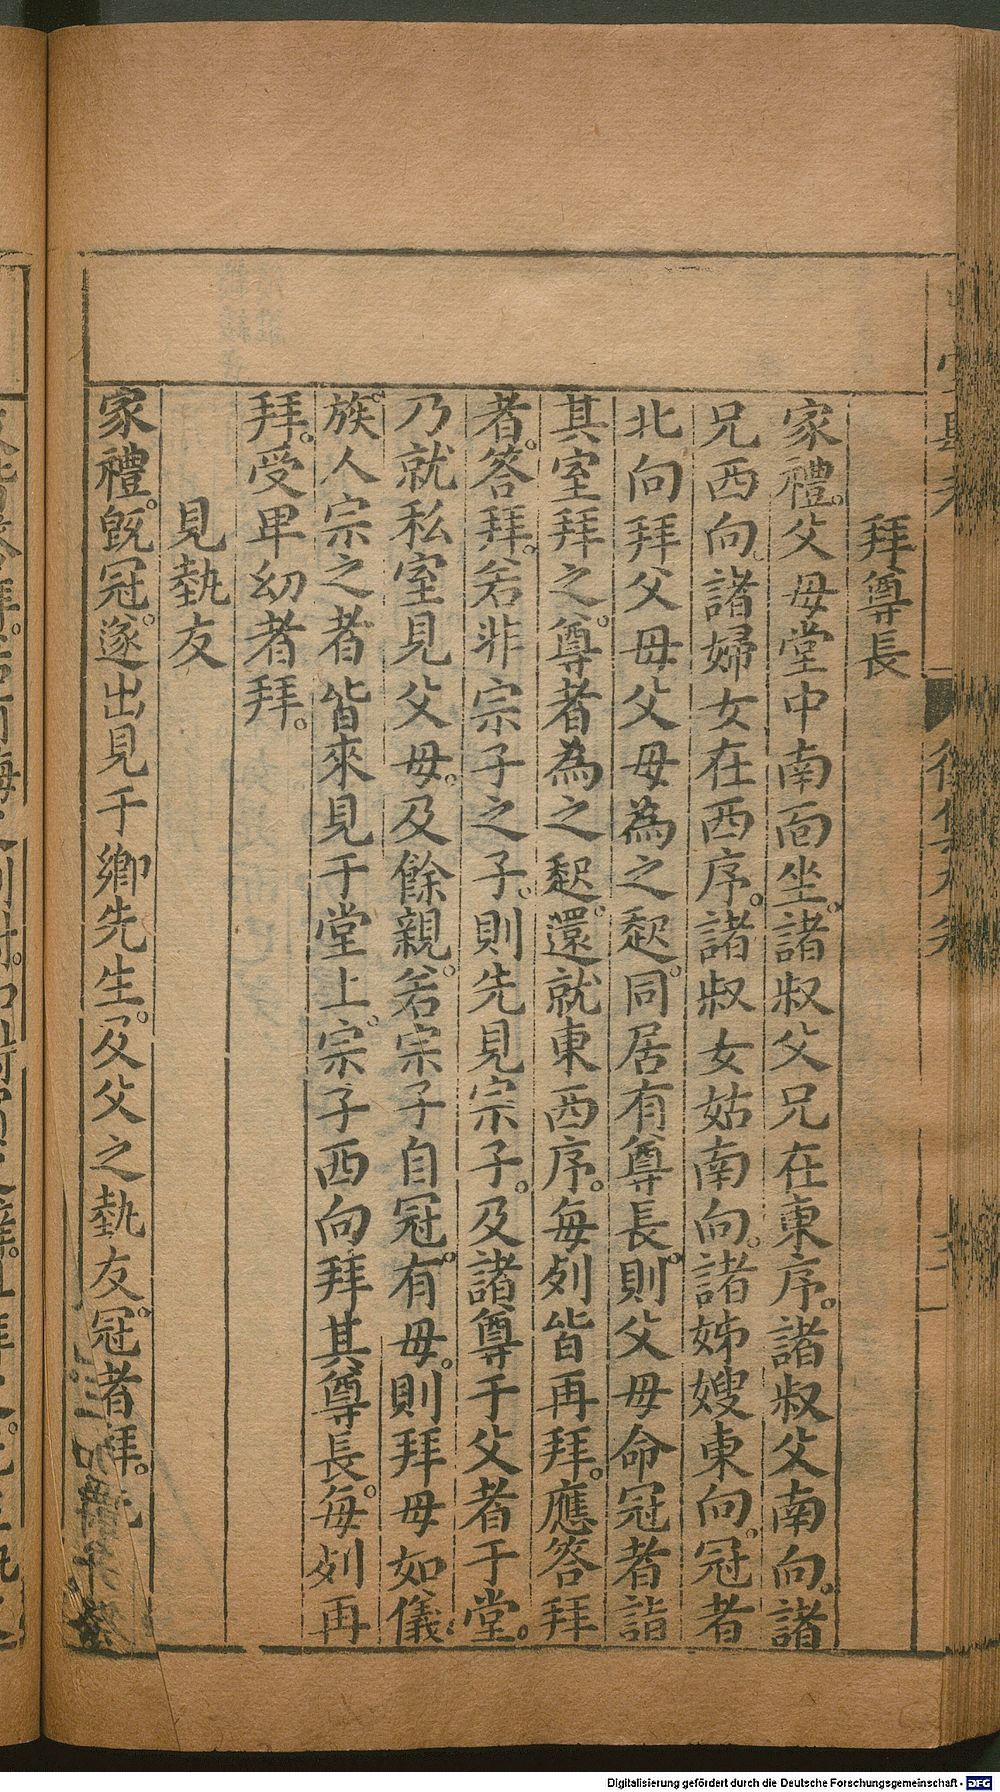 拜尊長
家禮。父母堂中南面坐。諸叔父兄在東序。諸叔父南向。諸
兄西向。諸婦女在西序。諸叔女姑南向。諸姊嫂東向。冠者
北向拜父母父母為之起。同居有尊長。則父母命冠者詣
其室拜之。尊者為之起。還就東西序。每列皆再拜。應答拜
者。答拜。若非宗子之子。則先見宗子。及諸尊于父者于堂。
乃就私室見父母。及餘親。若宗子自冠。有母。則拜母如儀。
族人宗之者皆來見于堂上。宗子西向拜其尊長。每列再
拜。受卑幼者拜。
見執友
家禮。既冠。遂出見于鄉先生。及父之執友。冠者拜。
Digitalisierung gefördert durch die Deutsche Forschungsgemeinschaft - DFG